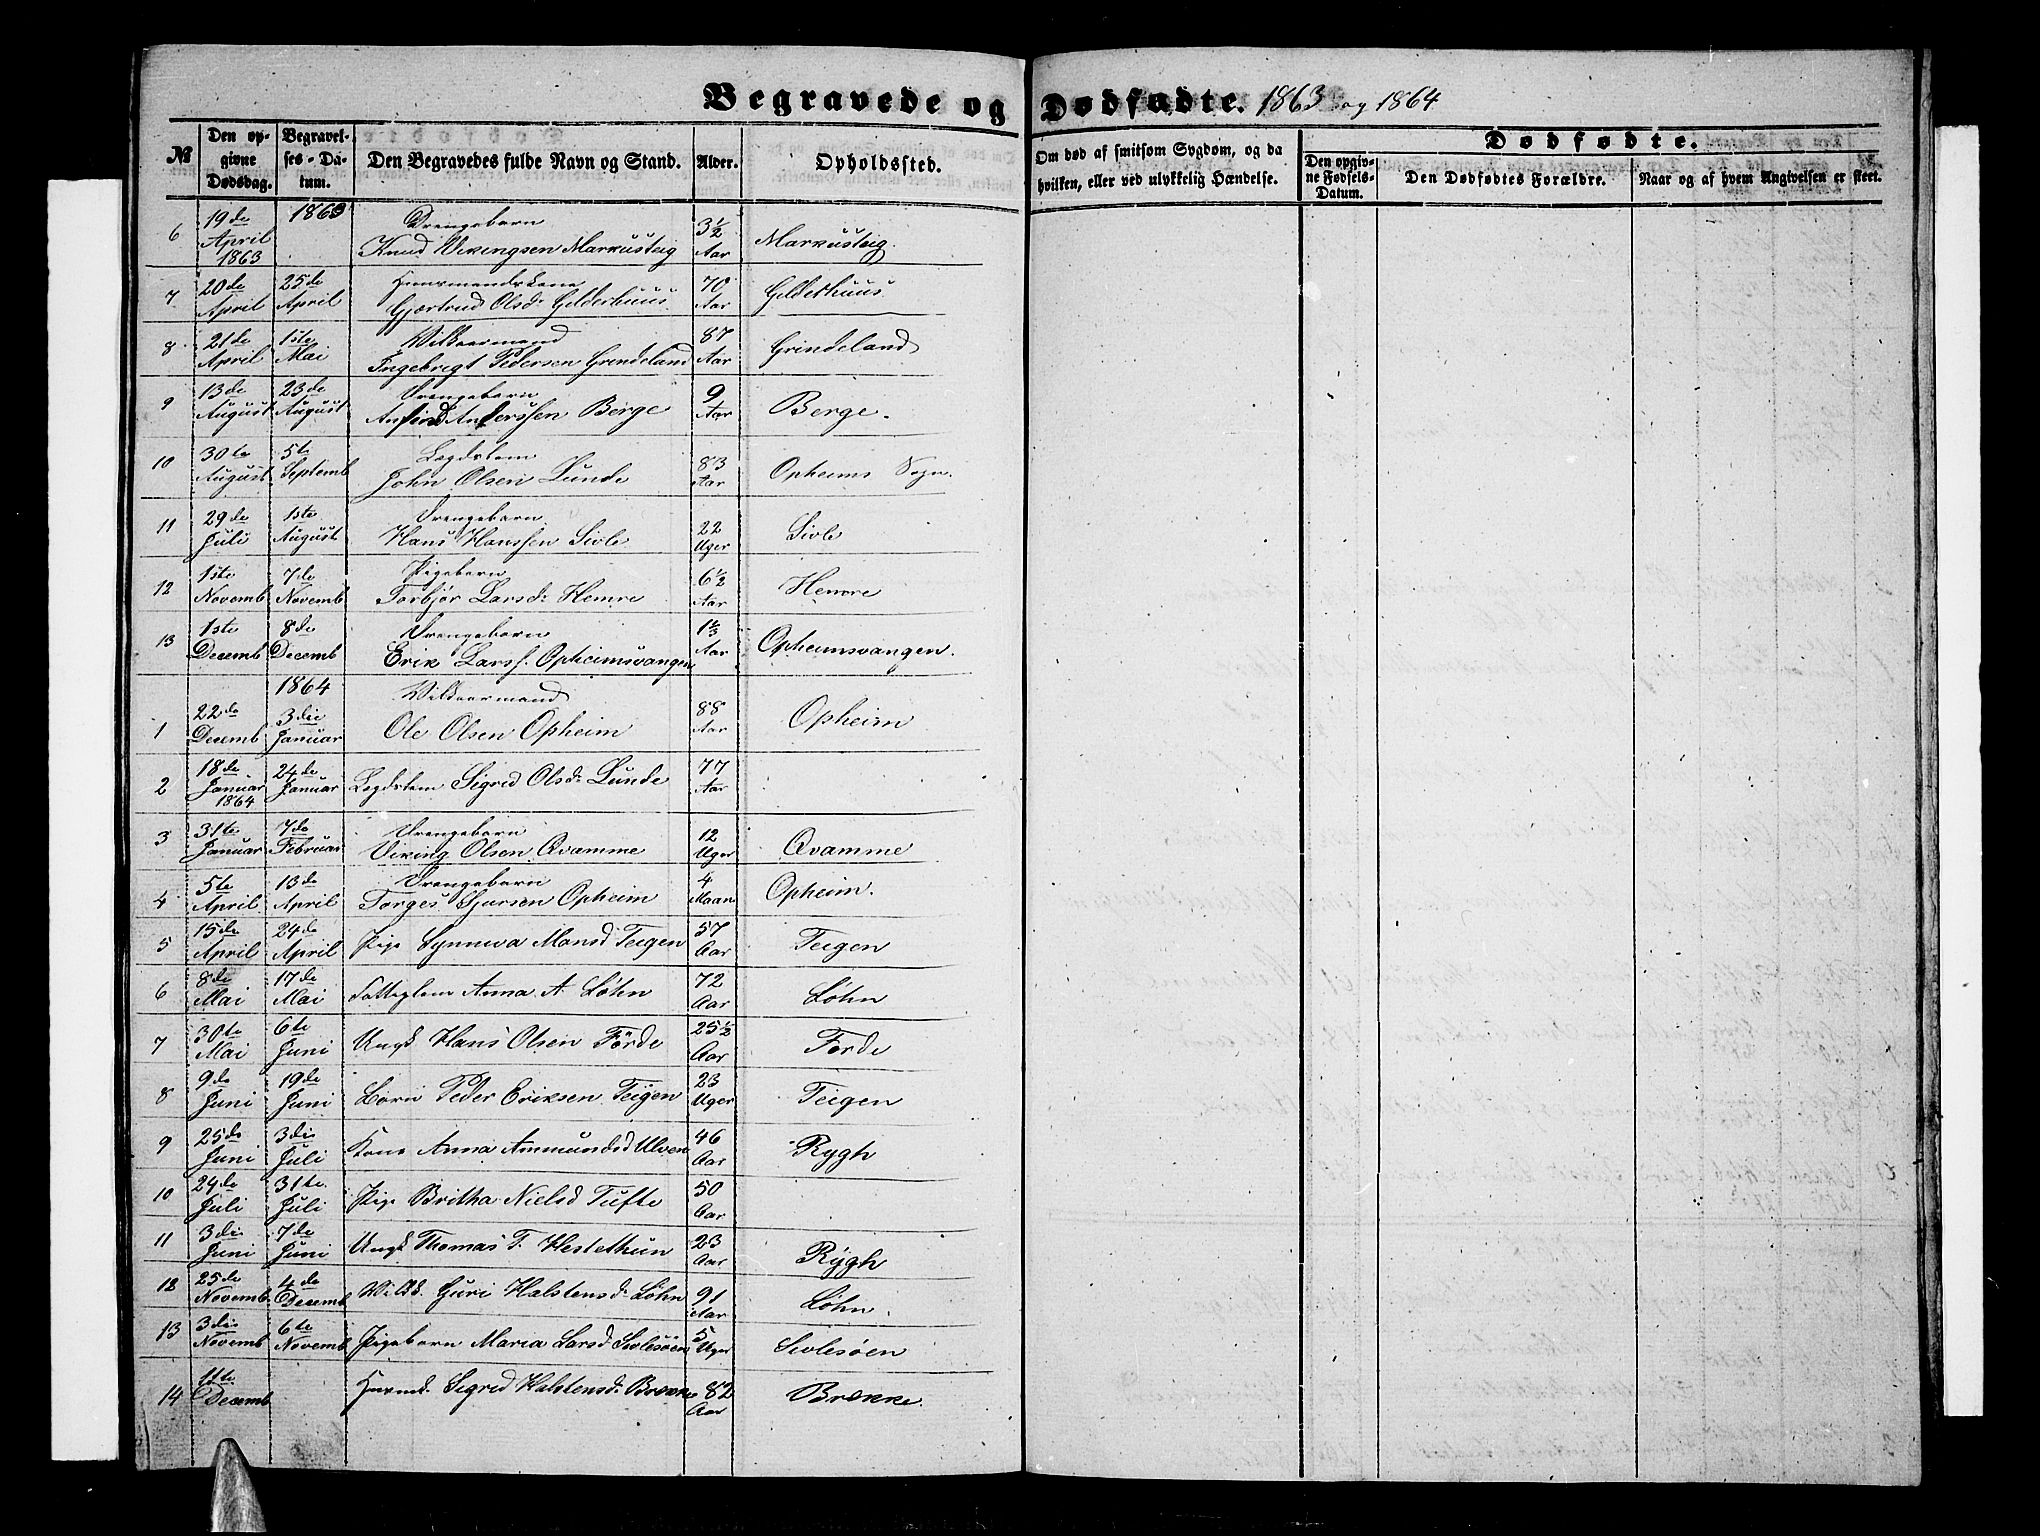 Begravede og Dødfødte. 1863 og 1864
№
Den op-
givne
Dødsdag.
Begravel-
ses-Da-
tum.
Den Begravedes fulde Navn og Stand.
Alder.
Opholdssted.
Om død af smitsom Sygdom, og da
hvilken, eller ved ulykkelig Hændelse.
Dødfødte.
Den opgiv-
ne Fødsels-
Datum.
Den Dødfødtes Forældre.
Naar og af hvem Angivelsen er skeet.
6 19de April 1863 1863 Drengebarn
Knud Vikingsen Markusteig 3½ Aar Markusteig
7 20de April 25de April Huusmandskone
Gjertrud Olsdr Gilderhuus 70 Aar Gilderhuus
8 21de April 1ste Mai Vilkaarmand
Ingebrigt Pedersen Grindeland 87 Aar Grindeland
9 13de August 23de August Drengebarn
Anfind Anderssen Berge 9 Aar Berge.
10 30te August 5te Septemb Lægdslem
John Olsen Lunde 83 Aar Opheims Sogn.
11 29de Juli 1ste August Drengebarn
Hans Hanssen Sivle 22 Uger Sivle
12 1ste Novemb 7de Novemb Pigebarn
Torbjør Larsdr Hemre 6½ Aar Hemre
13 1ste Decemb 8de Decemb Drengebarn
Erik Larss. Opheimsvangen Aar Opheimsvangen.
1864
1 22de Decemb 3die Januar Vilkaarmand
Ole Olsen Opheim 88 Aar Opheim
2 18de Januar 1864 24de Januar Lægdslem Sigrid Olsdr Lunde 77 Aar
3 31te Januar 7de Februar Drengebarn
Viking Olsen Qvamme 12 Uger Qvamme
4 5te April 13de April Drengebarn
Torges Sjursen Opheim 4 Maan Opheim.
5 15de April 24de April Pige Synneva Monsd Teigen 57 Aar Teigen
6 8de Mai 17de Mai Fattiglem Anna A. Løhn 72 Aar Løhn
7 30te Mai 6te Juni Ungk Hans Olsen Förde 25½ Aar Förde
8 9de Juni 19de Juni Barn Peder Eriksen Teigen 23 Uger Teigen
9 25de Juni 3die Juli Kone Anna Ammundsd Ulven 46 Aar Rygh
10 24de Juli 31te Juli Pige Britha Nielsd Tufte 50 Aar
11 3die Juni 7de Juni Ungk Thomas T. Hestethun 23 Aar Rygh
12 25de Novemb. 4de Decemb Vilk. Guri Halstensdr Løhn 91 Aar Løhn.
13 3die Novemb 6te Novemb Pigebarn Maria Larsd Sivlesöen 5 Uger Sivlesöen
14 Decemb Huusmd. Sigrid Halstensdr Brekke 82 Aar Brekke.